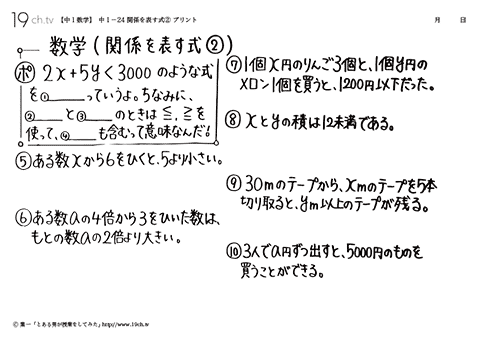 19ch.tv 【中1数学】 中1-24 関係を表す式② プリント 月 日
数学(関係を表す式②)
ポ 2x+5y<3000 のような式
を①____っていうよ。ちなみに、
②____と③____のときは≦,≧を
使って、④____も含むって意味なんだ!
⑤ある数xから6をひくと、5より小さい。
⑥ある数aの4倍から3をひいた数は、
もとの数aの2倍より大きい。
⑦1個x円のりんご3個と、1個y円の
メロン1個を買うと、1200円以下だった。
⑧xとyの積は12未満である。
⑨30mのテープから、xmのテープを5本
切り取ると、ym以上のテープが残る。
⑩3人でa円ずつ出すと、5000円のものを
買うことができる。
© 葉一「とある男が授業をしてみた」http://www.19ch.tv